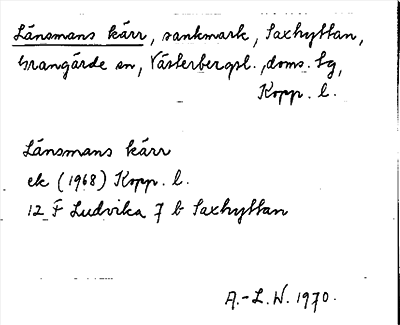 Länsmans kärr, sankmark, Saxhyttan,
Grangärde sn, Västerbergsl. doms. tg,
Kopp. l.
Länsmans kärr
ek (1968) Kopp. l.
12 F Ludvika 7 b Saxhyttan
A.-L. W. 1970.